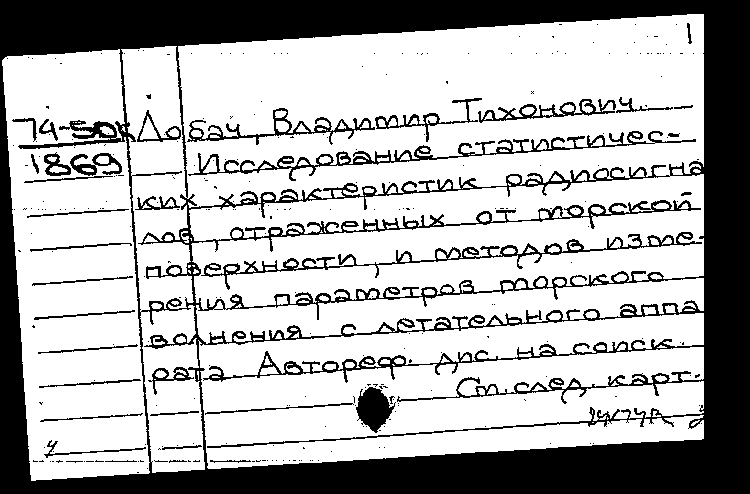 1
74-50к Лобач, Владимир Тихонович.
1869 Исследование статистичес-
ких характеристик радиосигна
лов, отраженных от морской
поверхности, и методов изме-
рения параметров морского
волнения с летательного аппа
рата. Автореф. дис. на соиск.
См. след. карт.